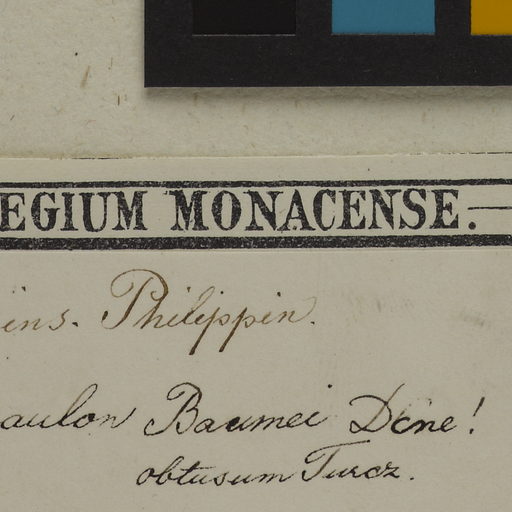 EGIUM MONACENSE.
ins. Philippin.
aulon Baumei Dcne!
obtusum Turcz.